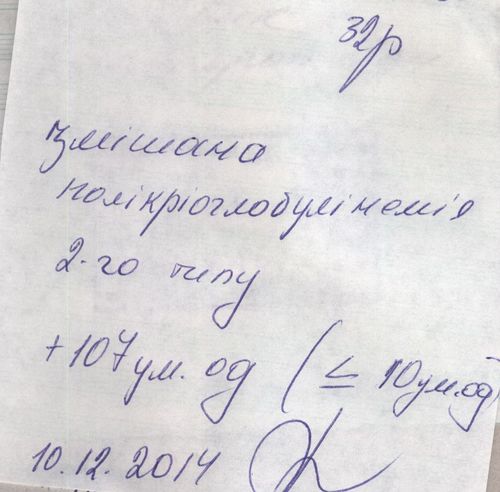 32р
змішана
полікріоглобулінемія
2-го типу
+107 ум. од (≤ 10 ум.од)
10.12.2014